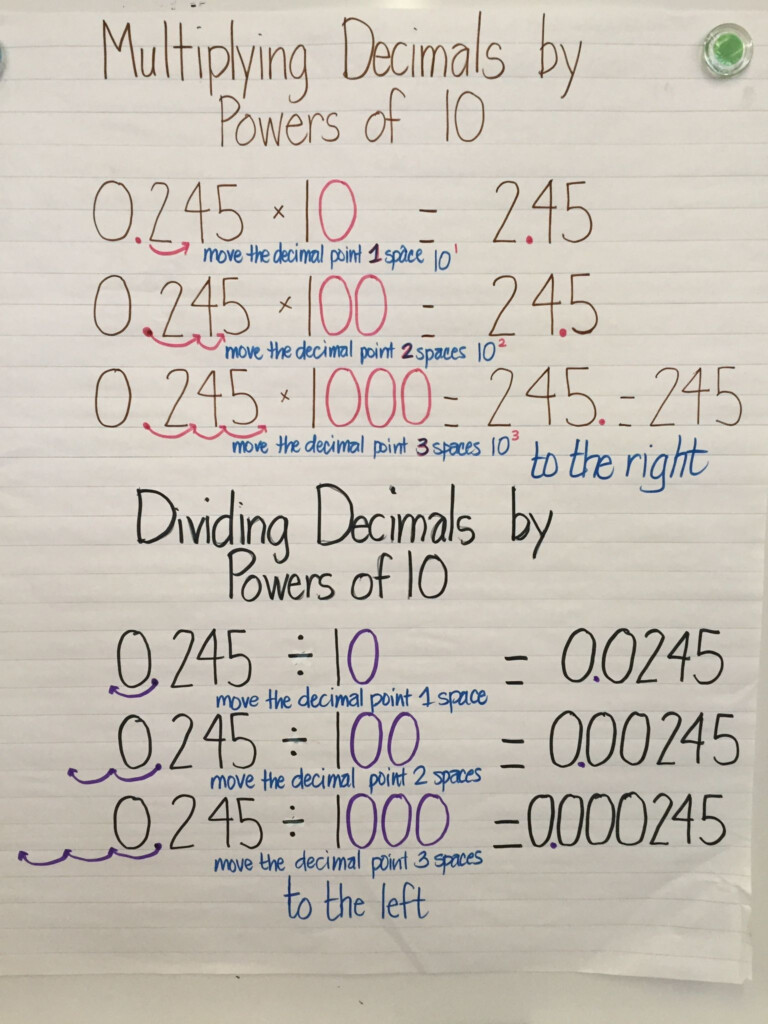 Multiplying Decimals by
Powers of 10
0.245 × 10 = 2.45
move the decimal point 1 space 10¹
0.245 × 100 = 24.5
move the decimal point 2 spaces 10²
0.245 × 1000 = 245. = 245
move the decimal point 3 spaces 10³ to the right
Dividing Decimals by
Powers of 10
0.245 ÷ 10 = 0.0245
move the decimal point 1 space
0.245 ÷ 100 = 0.00245
move the decimal point 2 spaces
0.245 ÷ 1000 = 0.000245
move the decimal point 3 spaces
to the left